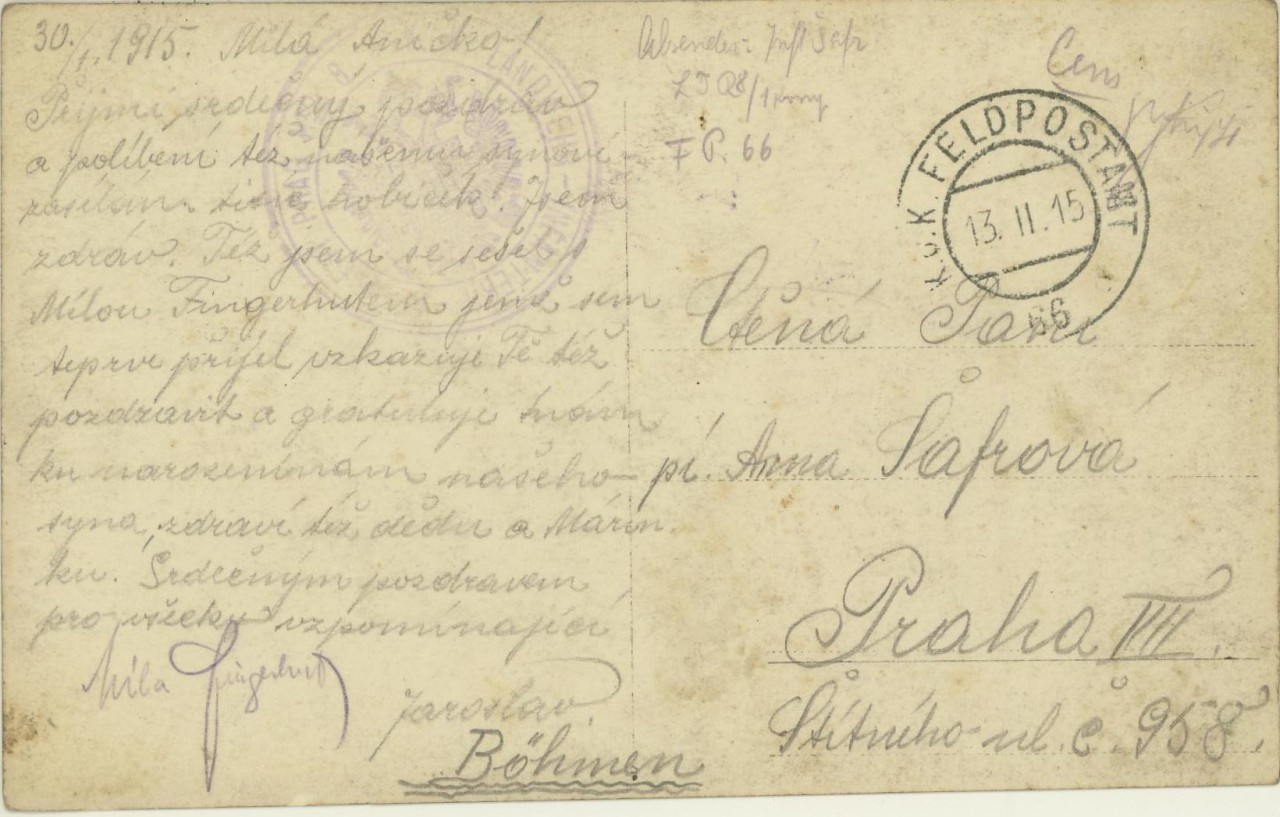 30./1. 1915. Milá Aničko!
Přijmi srdečný pozdrav
a políbení též našemu synovi
zasílám tisíc hubiček! Jsem
zdráv. Též jsem se sešel s
Mílou Fingerhutem jenž sem
teprve přijel vzkazuje Tě též
pozdravit a gratuluje k nám
ku narozeninám našeho
syna, zdraví též dědu a Mářin
ku. Srdečným pozdravem
pro všecky vzpomínající
Míla Fingerhut
Jaroslav.
Böhmen
Absender: Inft Šafr
F P. 66
K.u.K. FELDPOSTAMT
13. II. 15
66
Ctěná Paní
pí. Anna Šafrová
Praha VII.
Štítného ul. č. 958.